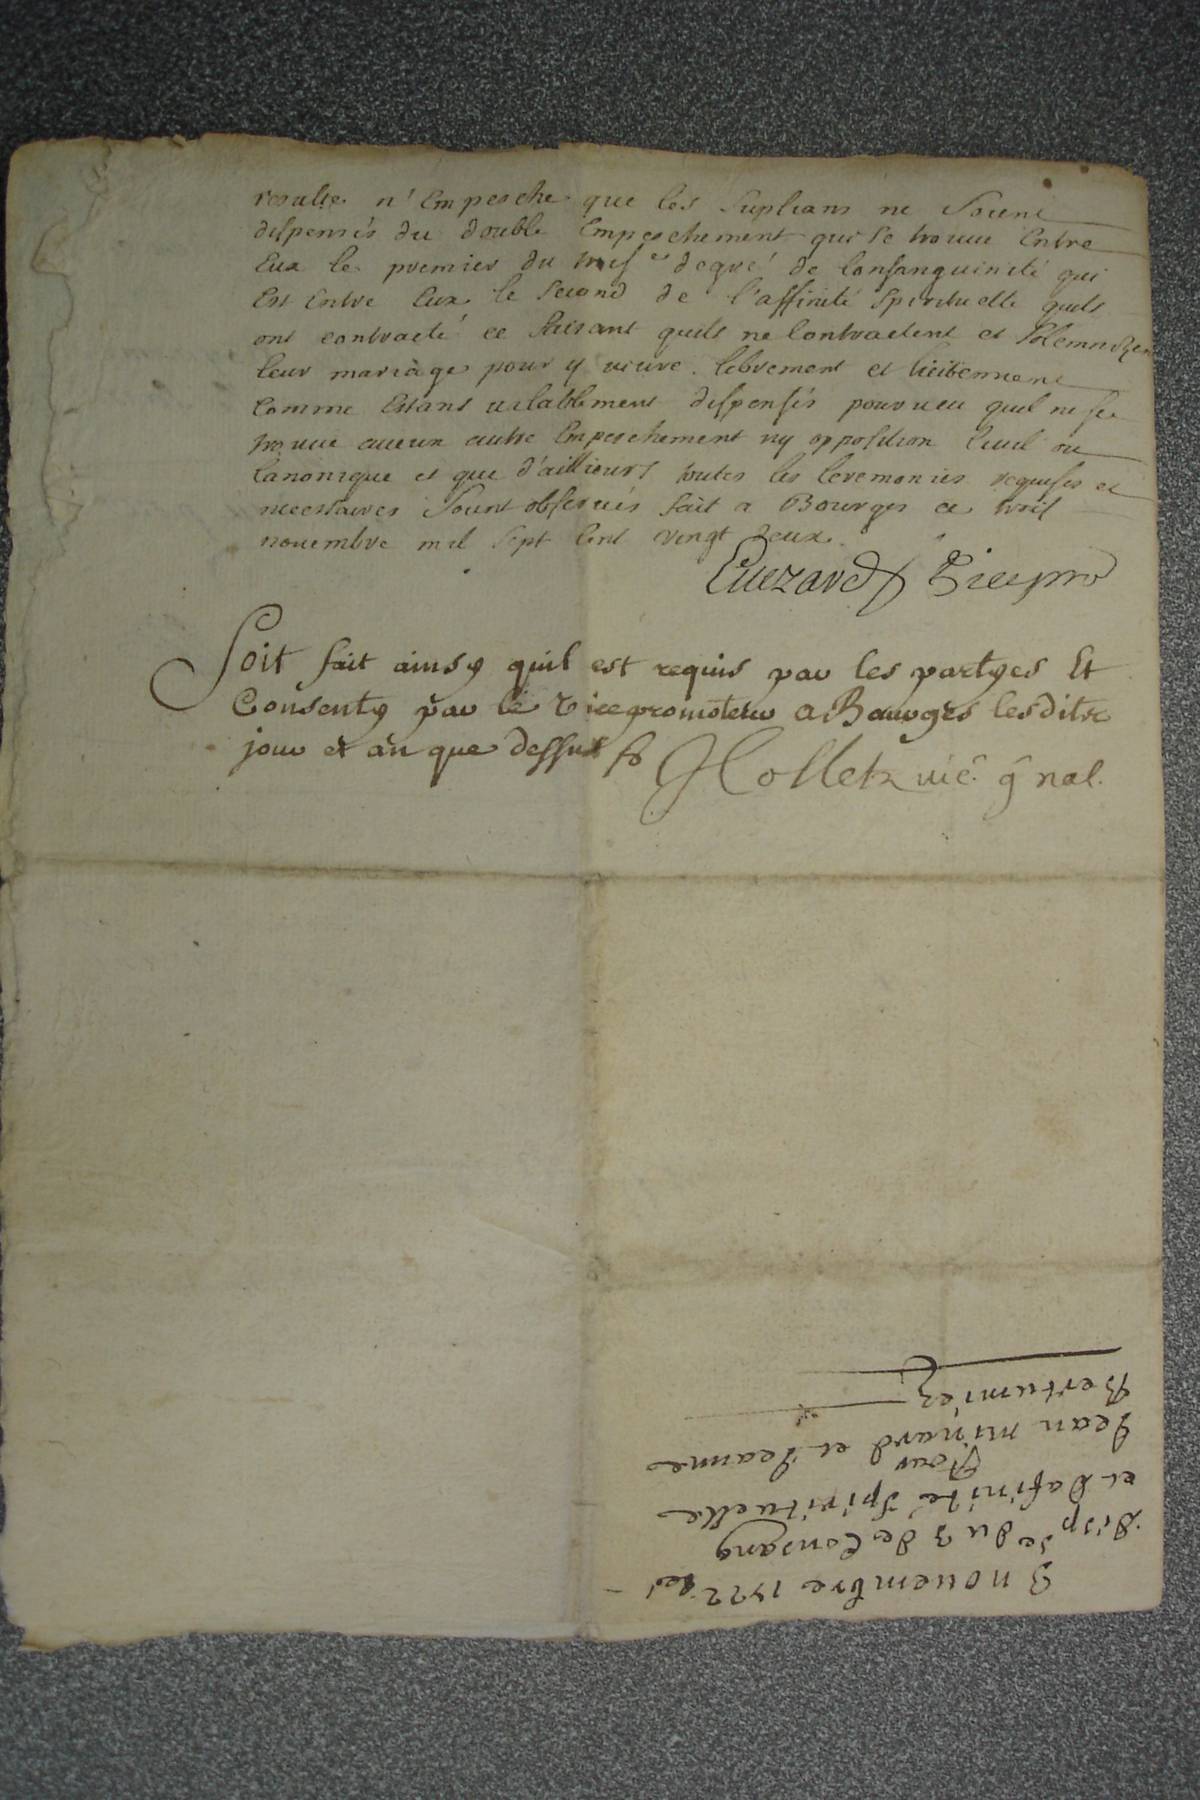 resulte n'Empesche que les Suplians ne Soient
dispensés du double Empeschement qui se trouue Entre
Eux le premier du trois e degré de Consanguinité qui
Est Entre Eux le Second de l'affinité Spirituelle quils
ont contracté ce faisant quils ne Contractent et Solemnizen
leur mariage pour y uiure librement et licitement
Comme Estans ualablement dispensés pourueu quil ne se
trouue aucun autre Empeschement ny opposition Ciuil ou
Canonique et que d'aillieurs toutes les Ceremonies requises et
necessaires Soient obserués fait a Bourges ce trois
nouembre mil Sept Cent vingt deux.
Soit fait ainsy quil est requis par les partyes Et
Consenty par le vicepromoteur A Bourges lesdits
jour et an que dessus
Hollet uic. g nal.
3 nouembre 1722
disp se du 3 de Consang
et Dafinité Spirituelle
pour
Jean minard et Jeanne
Bertumiez